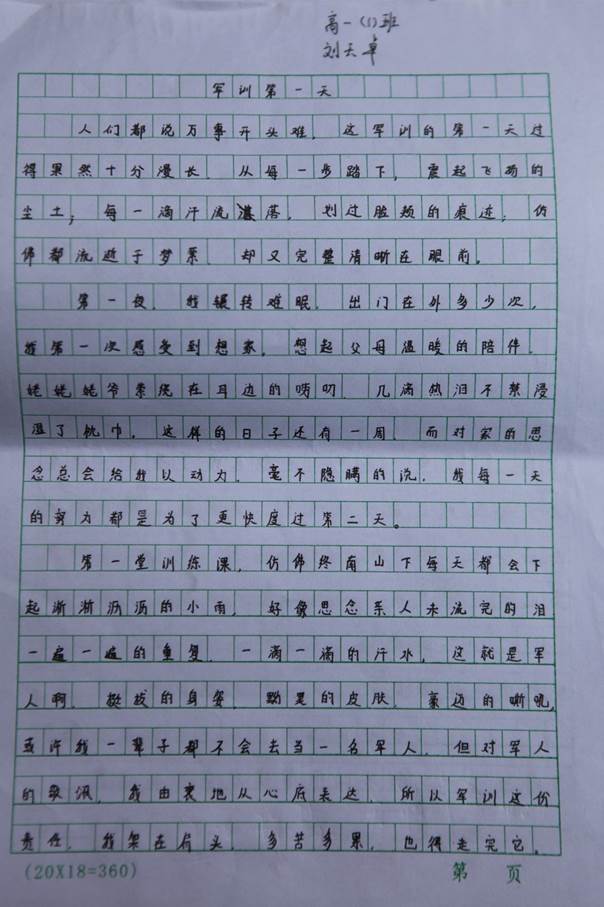 高一(1)班
刘天卓
军训第一天
人们都说万事开头难，这军训的第一天过
得果然十分漫长，从每一步踏下，震起飞扬的
尘土；每一滴汗流落，划过脸颊的痕迹；仿
佛都流逝于梦系，却又完整清晰在眼前。
第一夜，我辗转难眠，出门在外多少次，
我第一次感受到想家，想起父母温暖的陪伴，
姥姥姥爷萦绕在耳边的唠叨，几滴热泪不禁浸
湿了枕巾，这样的日子还有一周，而对家的思
念总会给我以动力，毫不隐瞒的说，我每一天
的努力都是为了更快度过第二天。
第一堂训练课，仿佛终南山下每天都会下
起淅淅沥沥的小雨，好像思念亲人未流完的泪
一遍一遍的重复，一滴一滴的汗水，这就是军
人啊，挺拔的身姿，黝黑的皮肤，豪迈的嘶吼，
或许我一辈子都不会去当一名军人，但对军人
的敬佩，我由衷地从心底表达，所以军训这份
责任，我架在肩头，多苦多累，也得走完它。
(20X18=360)
第 页